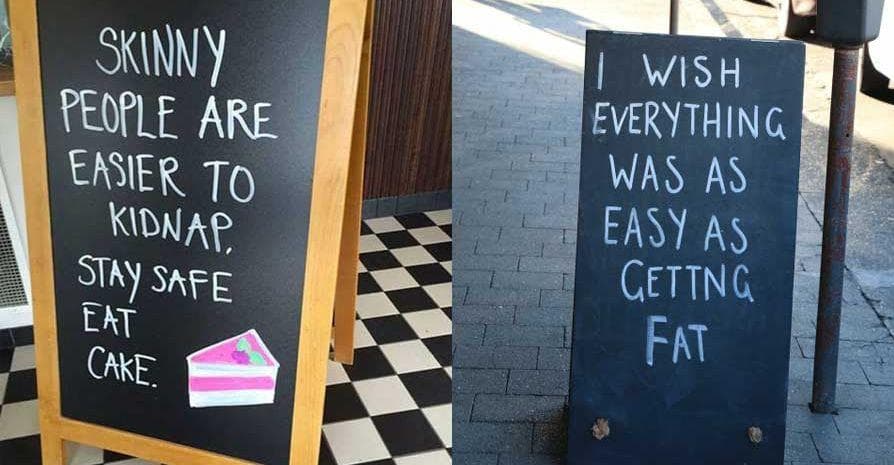 SKINNY
PEOPLE ARE
EASIER TO
KIDNAP.
STAY SAFE
EAT
CAKE.
I WISH
EVERYTHING
WAS AS
EASY AS
GETTNG
FAT